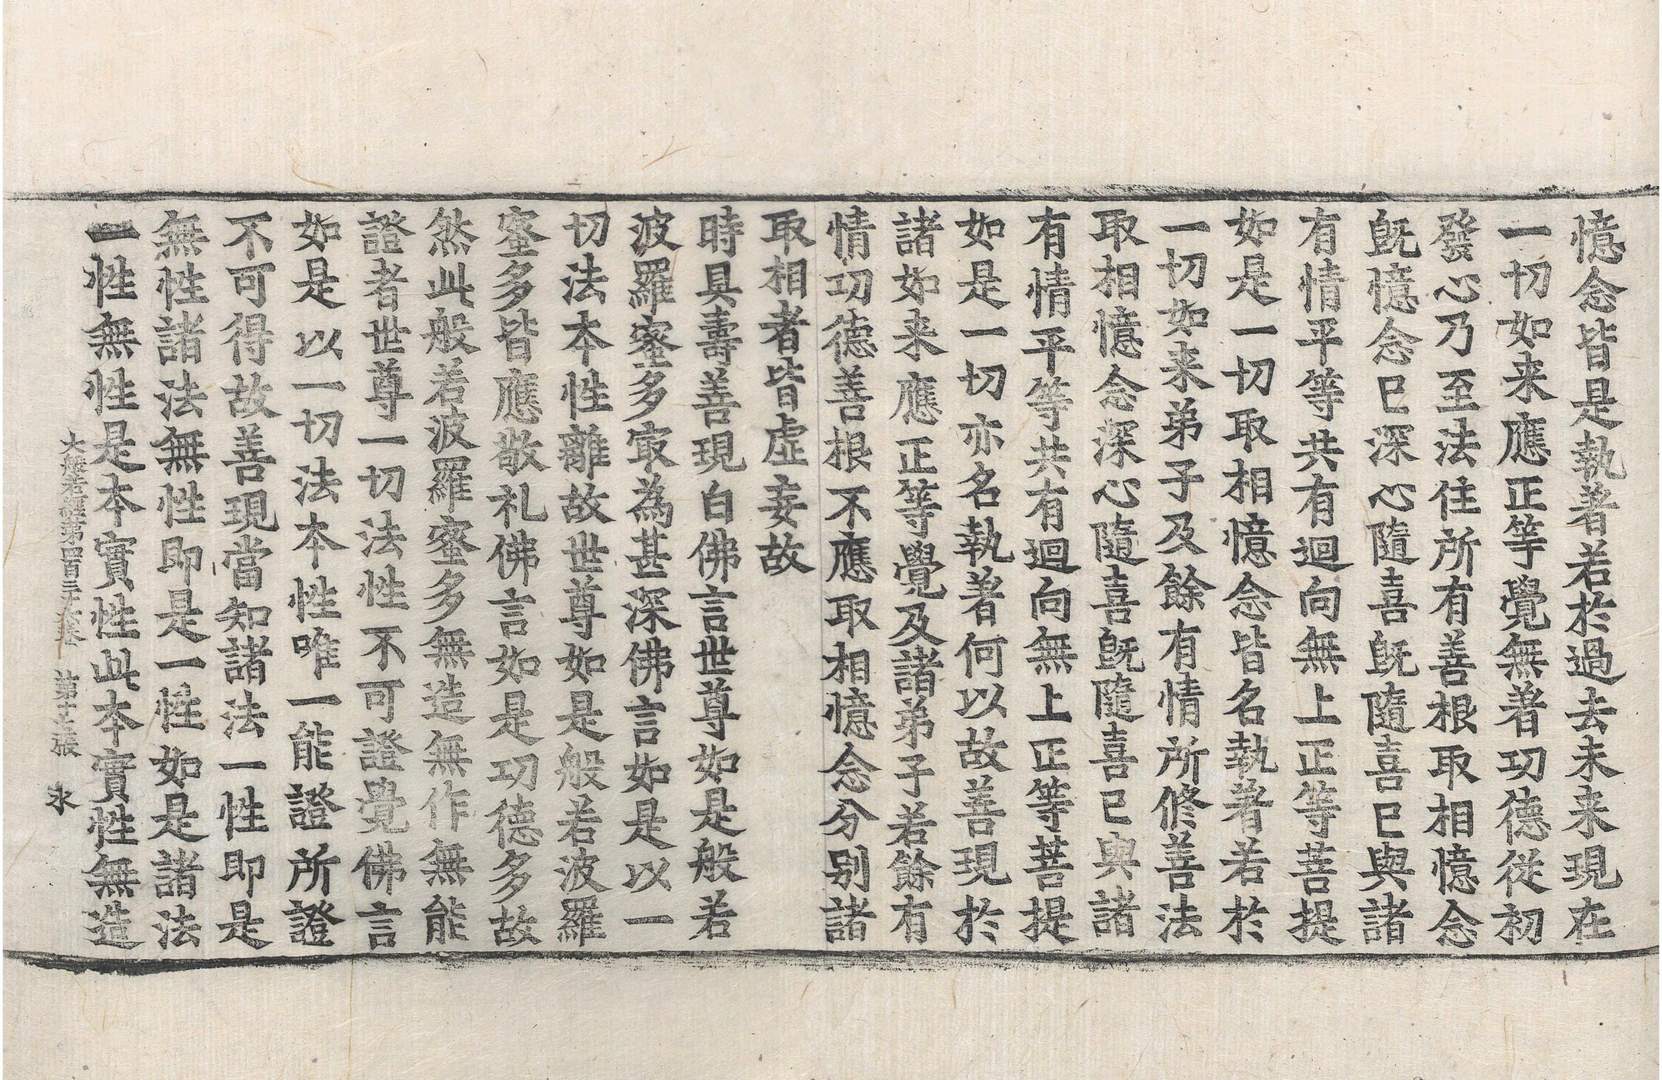 憶念皆是執著若於過去未来現在
一切如来應正等覺無著功德從初
發心乃至法住所有善根取相憶念
旣憶念已深心隨喜旣隨喜已與諸
有情平等共有迴向無上正等菩提
如是一切取相憶念皆名執著若於
一切如来弟子及餘有情所修善法
取相憶念深心隨喜旣隨喜已與諸
有情平等共有迴向無上正等菩提
如是一切亦名執著何以故善現於
諸如来應正等覺及諸弟子若餘有
情功德善根不應取相憶念分别諸
取相者皆虛妄故
時具壽善現白佛言世尊如是般若
波羅蜜多㝡為甚深佛言如是以一
切法本性離故世尊如是般若波羅
蜜多皆應敬礼佛言如是功德多故
然此般若波羅蜜多無造無作無能
證者世尊一切法性不可證覺佛言
如是以一切法本性唯一能證所證
不可得故善現當知諸法一性即是
無性諸法無性即是一性如是諸法
一性無性是本實性此本實性無造
大般若經第四百三十六卷 第十五張 永